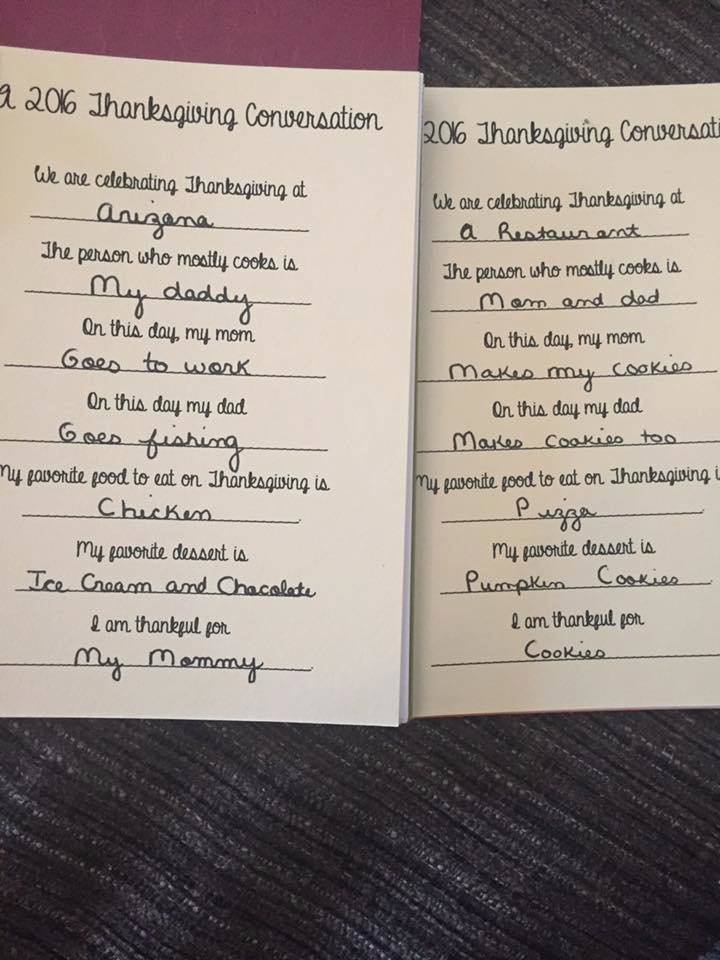 a 2016 Thanksgiving Conversation
We are celebrating Thanksgiving at
Arizana
The person who mostly cooks is
My daddy
On this day, my mom
Goes to work
On this day my dad
Goes fishing
My favorite food to eat on Thanksgiving is
Chicken
My favorite dessert is
Ice Cream and Chacolate
I am thankful for
My Mommy
2016 Thanksgiving Conversati
We are celebrating Thanksgiving at
a Restaurant
The person who mostly cooks is
Mom and dad
On this day, my mom
Makes my cookies
On this day my dad
Makes cookies too
My favorite food to eat on Thanksgiving i
Pizza
My favorite dessert is
Pumpkin Cookies
I am thankful for
Cookies